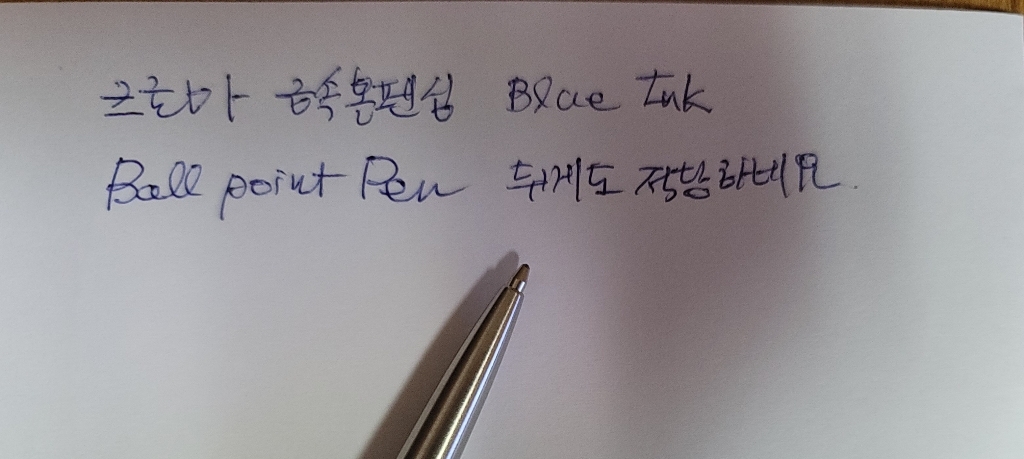 크로바 금속볼펜심 Blue Ink
Ball point Pen 뒤게도 적당하네요.